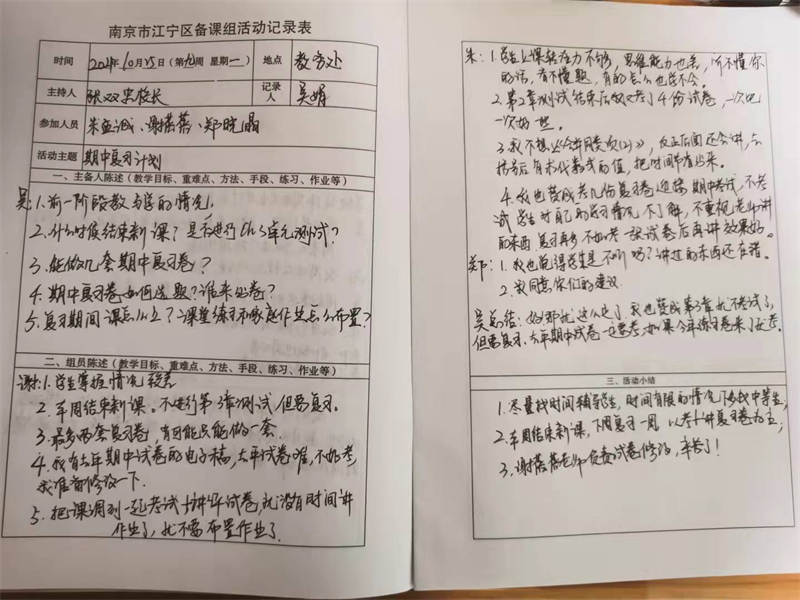 南京市江宁区备课组活动记录表
时间 2021年10月25日（第九周 星期一） 地点 教务处
主持人 张双忠校长 记录人 吴娟
参加人员 朱孟诚、谢蓓蓓、郑晓晶
活动主题 期中复习计划
一、主备人陈述（教学目标、重难点、方法、手段、练习、作业等）
吴：1.前一阶段教与学的情况.
2.什么时候结束新课？是否进行Ch3单元测试？
3.能做几套期中复习卷？
4.期中复习卷如何选题？谁来出卷？
5.复习期间课怎么上？课堂练习和家庭作业怎么布置？
二、组员陈述（教学目标、重难点、方法、手段、练习、作业等）
谢：1.学生掌握情况较差
2.本周结束新课。不进行第3章测试但要复习.
3.最多两套复习卷，有可能只能做一套.
4.我有去年期中试卷的电子稿，去年试卷难，不好考，
我准备修改一下.
5.把课调到一起考试+讲评试卷，就没有时间讲
作业了，就不要布置作业了.
朱：1.学生上课转注力不够，思维能力也差，听不懂你
的话，看不懂题，有的怎么也学不会.
2.第2章测试结束后又考了4份试卷，一次比
一次好些.
3.我不想 合并同类项(2)》，反正后面还会讲，去
括号后有求代数式的值，把时间节省出来。
4.我也赞成考几份复习卷迎接期中考试，不考
试学生对自己的学习情况不了解，不重视老师讲
的东西.复习再多不如考一张试卷后再讲效果好.
郑：1.我也觉得学生是不听吗？讲过的东西还在错.
2.我同意你们的建议.
吴总结：好！那就这么定了，我也赞成第3章就不考试了，
但要复习.去年期中试卷一定要考，如果今年练习卷来了就考.
三、活动小结
1.尽量找时间辅导学生，时间有限的情况下多找中等生；
2.本周结束新课，下周复习一周，以考+讲复习卷为主；
3.谢蓓蓓老师负责试卷修改，辛苦了！